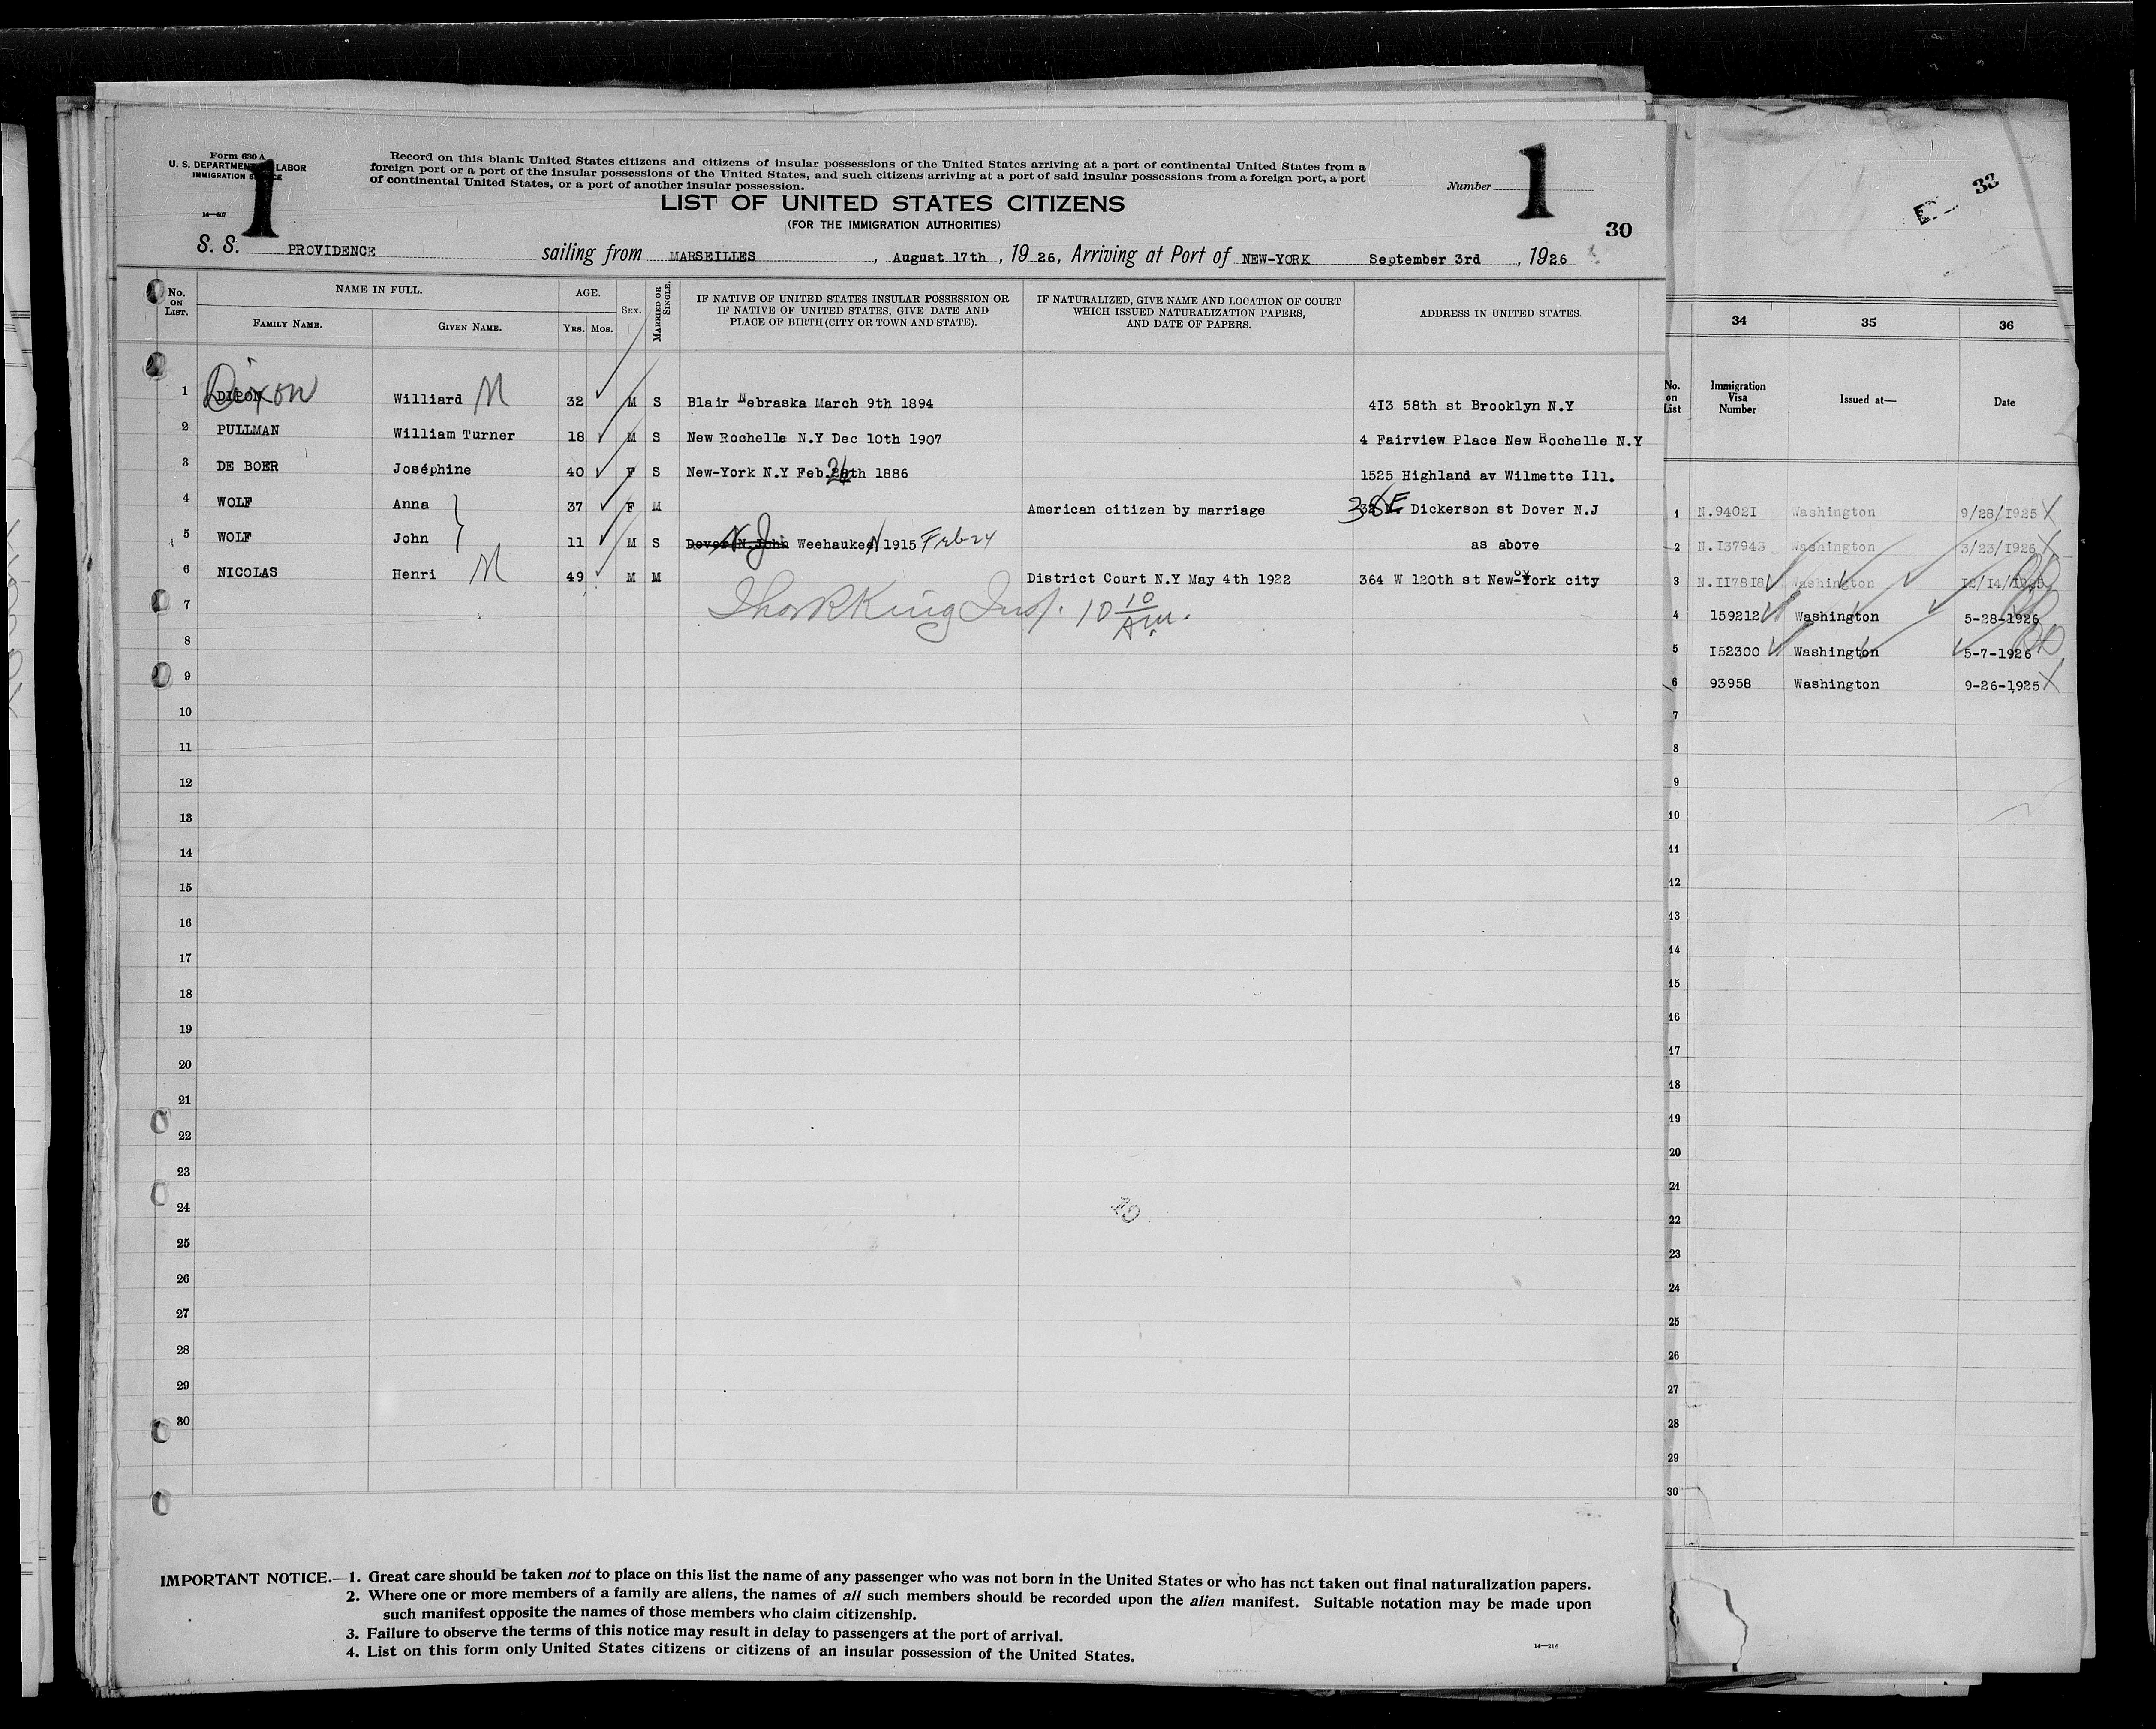 Form 630 A
U. S. DEPARTMENT LABOR
IMMIGRATION
14—607
1
Record on this blank United States citizens and citizens of insular possessions of the United States arriving at a port of continental United States from a
foreign port or a port of the insular possessions of the United States, and such citizens arriving at a port of said insular possessions from a foreign port, a port
of continental United States, or a port of another insular possession.
Number 1
LIST OF UNITED STATES CITIZENS
(FOR THE IMMIGRATION AUTHORITIES)
30
S. S. PROVIDENCE sailing from MARSEILLES, August 17th, 1926, Arriving at Port of NEW-YORK September 3rd, 1926
No. ON LIST. NAME IN FULL. FAMILY NAME. GIVEN NAME. AGE. Yrs. Mos. SEX. MARRIED OR SINGLE. IF NATIVE OF UNITED STATES INSULAR POSSESSION OR IF NATIVE OF UNITED STATES, GIVE DATE AND PLACE OF BIRTH (CITY OR TOWN AND STATE). IF NATURALIZED, GIVE NAME AND LOCATION OF COURT WHICH ISSUED NATURALIZATION PAPERS, AND DATE OF PAPERS. ADDRESS IN UNITED STATES.
1 Dixon Williard M 32 M S Blair Nebraska March 9th 1894 4I3 58th st Brooklyn N.Y
2 PULLMAN William Turner 18 M S New Rochelle N.Y Dec 10th 1907 4 Fairview Place New Rochelle N.Y
3 DE BOER Joséphine 40 F S New-York N.Y Feb. th 1886 1525 Highland av Wilmette Ill.
4 WOLF Anna 37 F M American citizen by marriage 38 E Dickerson st Dover N.J
5 WOLF John 11 M S Dover N. John N J Weehauken 1915 Feb 24 as above
6 NICOLAS Henri M 49 M M District Court N.Y May 4th 1922 364 W 120th st New-York city
7 King Insp. 10 10 Am.
8
9
10
11
12
13
14
15
16
17
18
19
20
21
22
23
24
25
26
27
28
29
30
IMPORTANT NOTICE.—1. Great care should be taken not to place on this list the name of any passenger who was not born in the United States or who has not taken out final naturalization papers.
2. Where one or more members of a family are aliens, the names of all such members should be recorded upon the alien manifest. Suitable notation may be made upon
such manifest opposite the names of those members who claim citizenship.
3. Failure to observe the terms of this notice may result in delay to passengers at the port of arrival.
4. List on this form only United States citizens or citizens of an insular possession of the United States.
14—214
33
34 35 36
No. on List Immigration Visa Number Issued at— Date
1 N.9402I Washington 9/28/1925 X
2 N.I37943 Washington 3/23/1926 X
3 N.II78I8 Washington 12/14/1925
4 159212 Washington 5-28-1926
5 I52300 Washington 5-7-1926
6 93958 Washington 9-26-1925 X
7
8
9
10
11
12
13
14
15
16
17
18
19
20
21
22
23
24
25
26
27
28
29
30